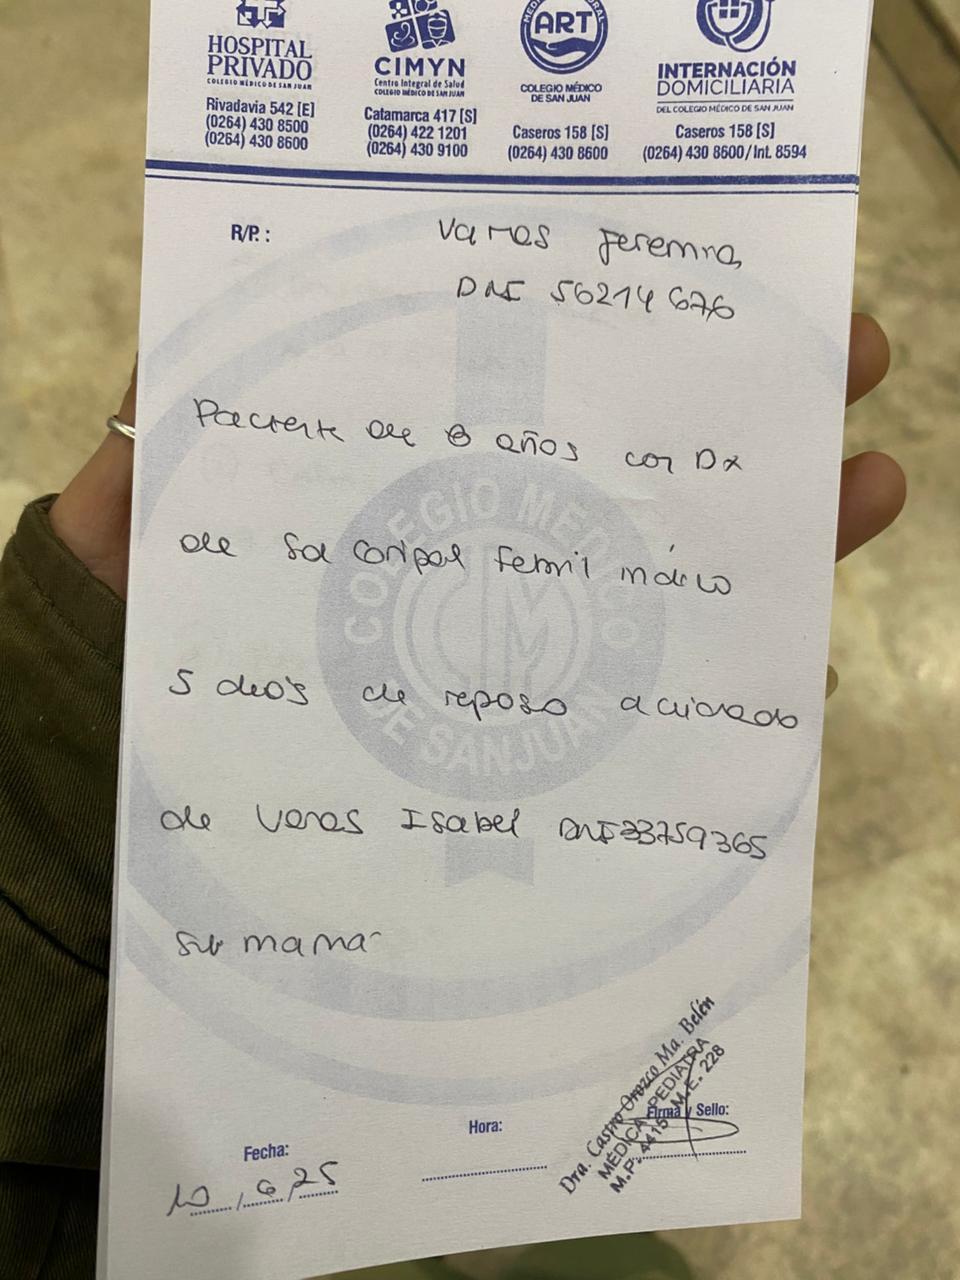 HOSPITAL
PRIVADO
COLEGIO MÉDICO DE SAN JUAN
Rivadavia 542 [E]
(0264) 430 8500
(0264) 430 8600
CIMYN
Centro Integral de Salud
COLEGIO MÉDICO DE SAN JUAN
Catamarca 417 [S]
(0264) 422 1201
(0264) 430 9100
ART
COLEGIO MÉDICO
DE SAN JUAN
Caseros 158 [S]
(0264) 430 8600
INTERNACIÓN
DOMICILIARIA
DEL COLEGIO MÉDICO DE SAN JUAN
Caseros 158 [S]
(0264) 430 8600/Int. 8594
R/P.:
Jeremías
DNI 56214676
Paciente de 8 años con Dx
de febril indico
5 días de reposo a cuidado
de Isabel DNI 33759365
su mamá
COLEGIO MEDICO
DE SAN JUAN
Fecha:
10/6/25
Hora:
Firma y Sello:
Dra. Castro Orozco Ma. Belén
MÉDICA PEDIATRA
M.P. 4415 M.E. 228